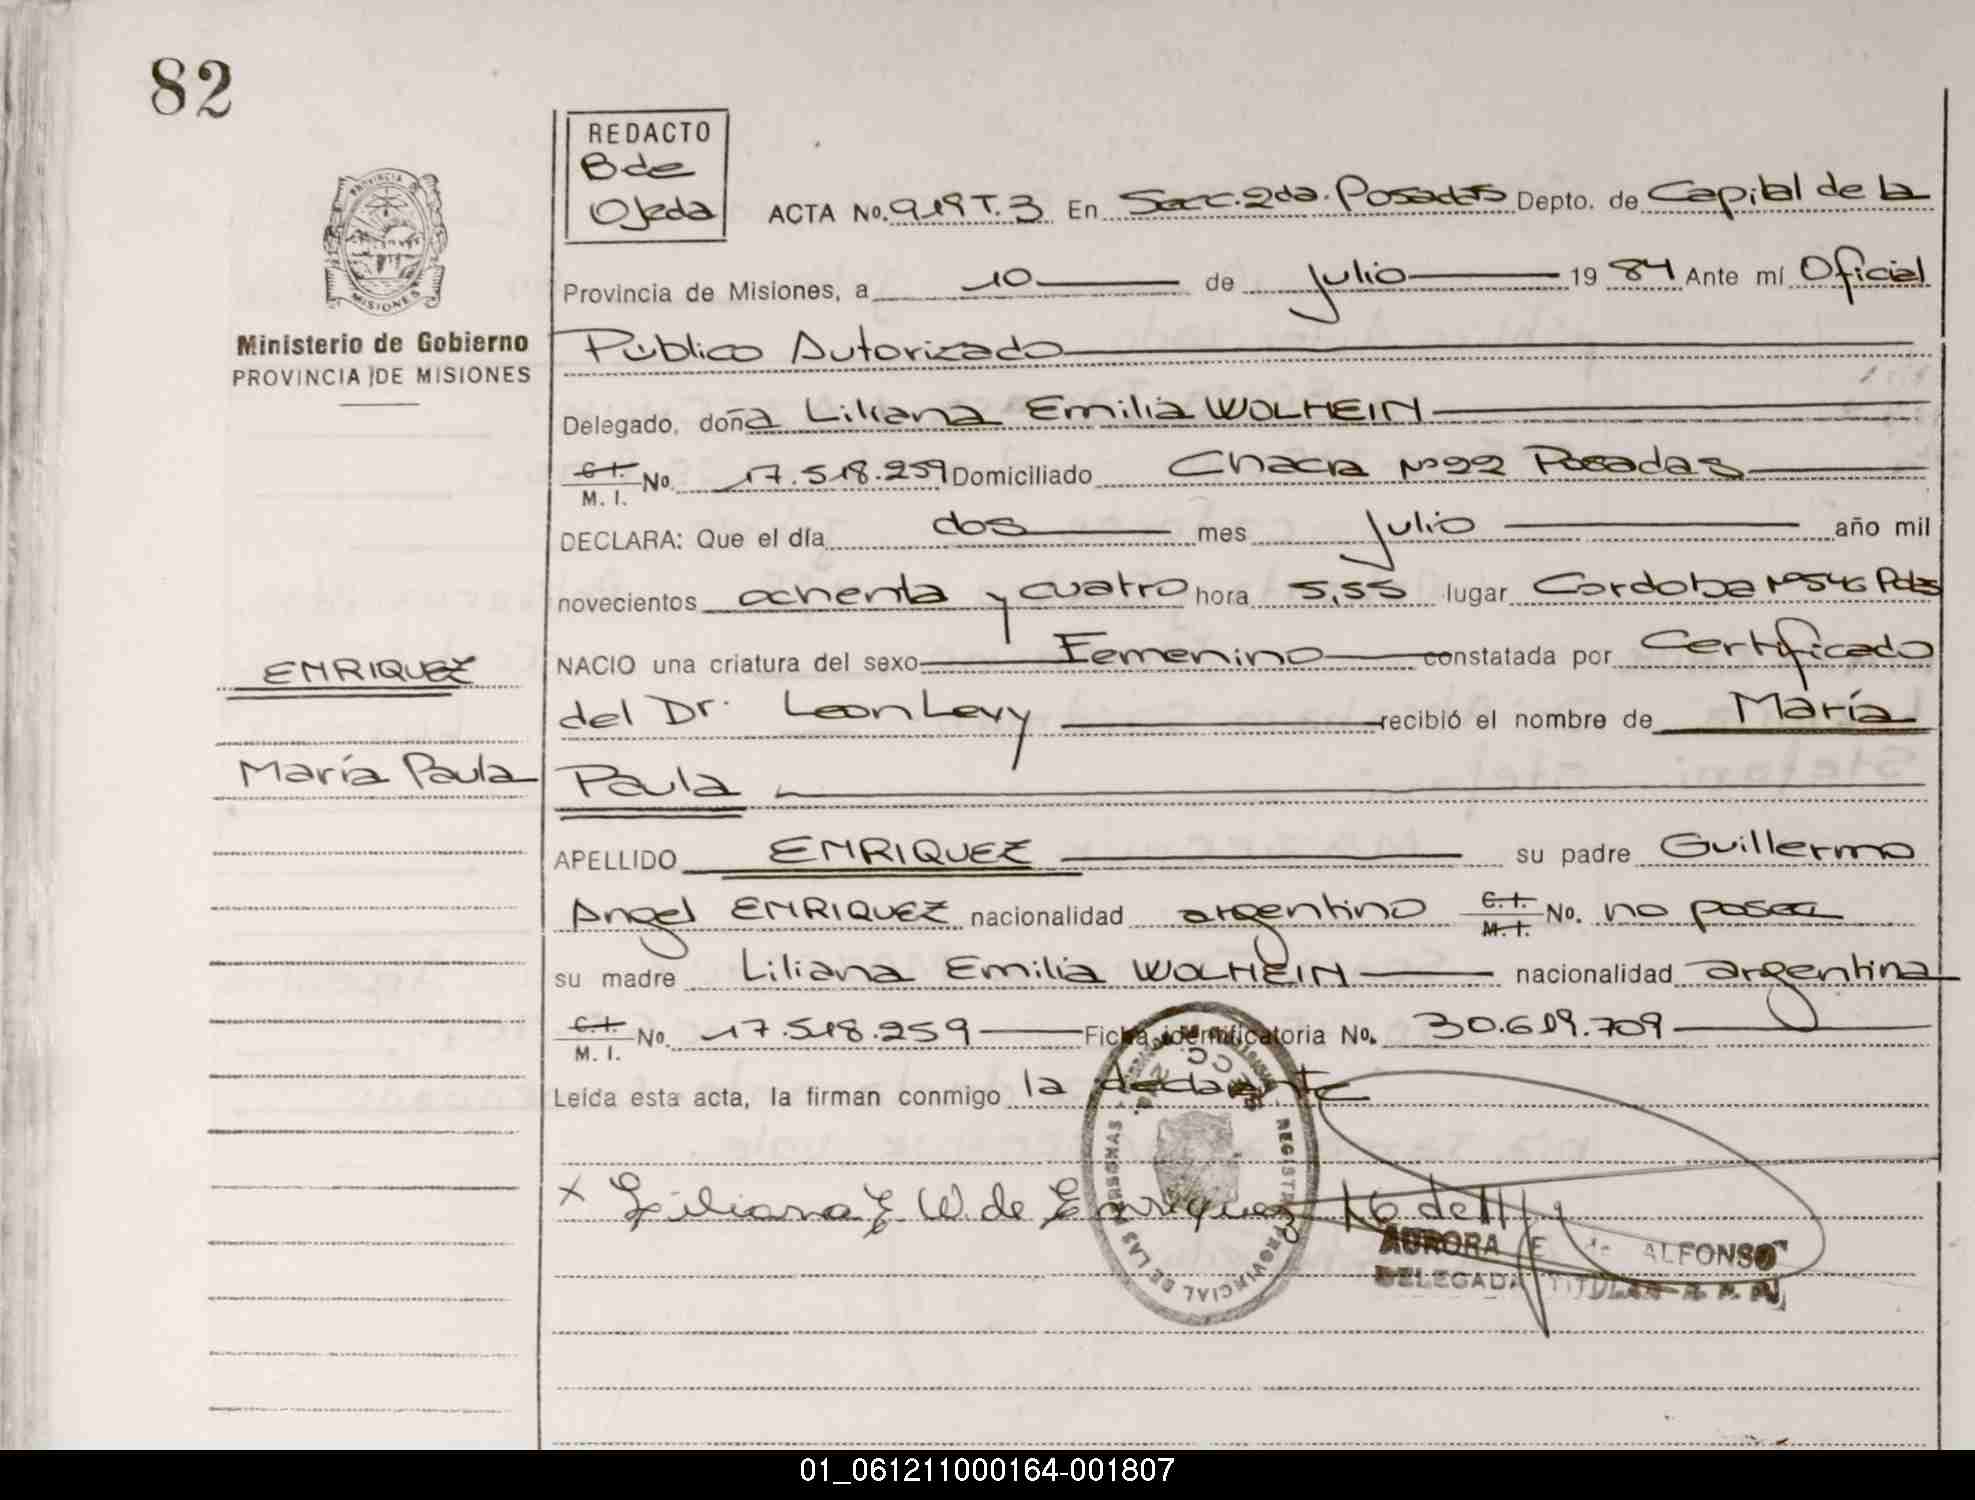 82
REDACTO
B de
Ojeda
ACTA No. 919 T.3 En Secc. 2da. Posadas Depto. de Capital de la
PROVINCIA
MISIONES
Ministerio de Gobierno
PROVINCIA DE MISIONES
Provincia de Misiones, a 10 de julio 1984 Ante mí Oficial
Público Autorizado
Delegado, doña Liliana Emilia WOLHEIN
C.I. M.I. No. 17.518.259 Domiciliado Chacra Nº 22 Posadas
DECLARA: Que el día dos mes julio año mil
novecientos ochenta y cuatro hora 5,55 lugar Cordoba Nº 546 Pdas
NACIO una criatura del sexo Femenino constatada por Certificado
ENRIQUEZ
del Dr. Leon Levy recibió el nombre de María
María Paula
Paula
APELLIDO ENRIQUEZ su padre Guillermo
Angel ENRIQUEZ nacionalidad argentino C.I. M.I. No. no posee
su madre Liliana Emilia WOLHEIN nacionalidad argentina
C.I. M.I. No. 17.518.259 Ficha identificatoria No. 30.619.709
Leída esta acta, la firman conmigo la declarante
x Liliana E W. de Enriquez
REGISTRO PROVINCIAL DE LAS PERSONAS
AURORA E. de ALFONSO
DELEGADA TITULAR
01_061211000164-001807